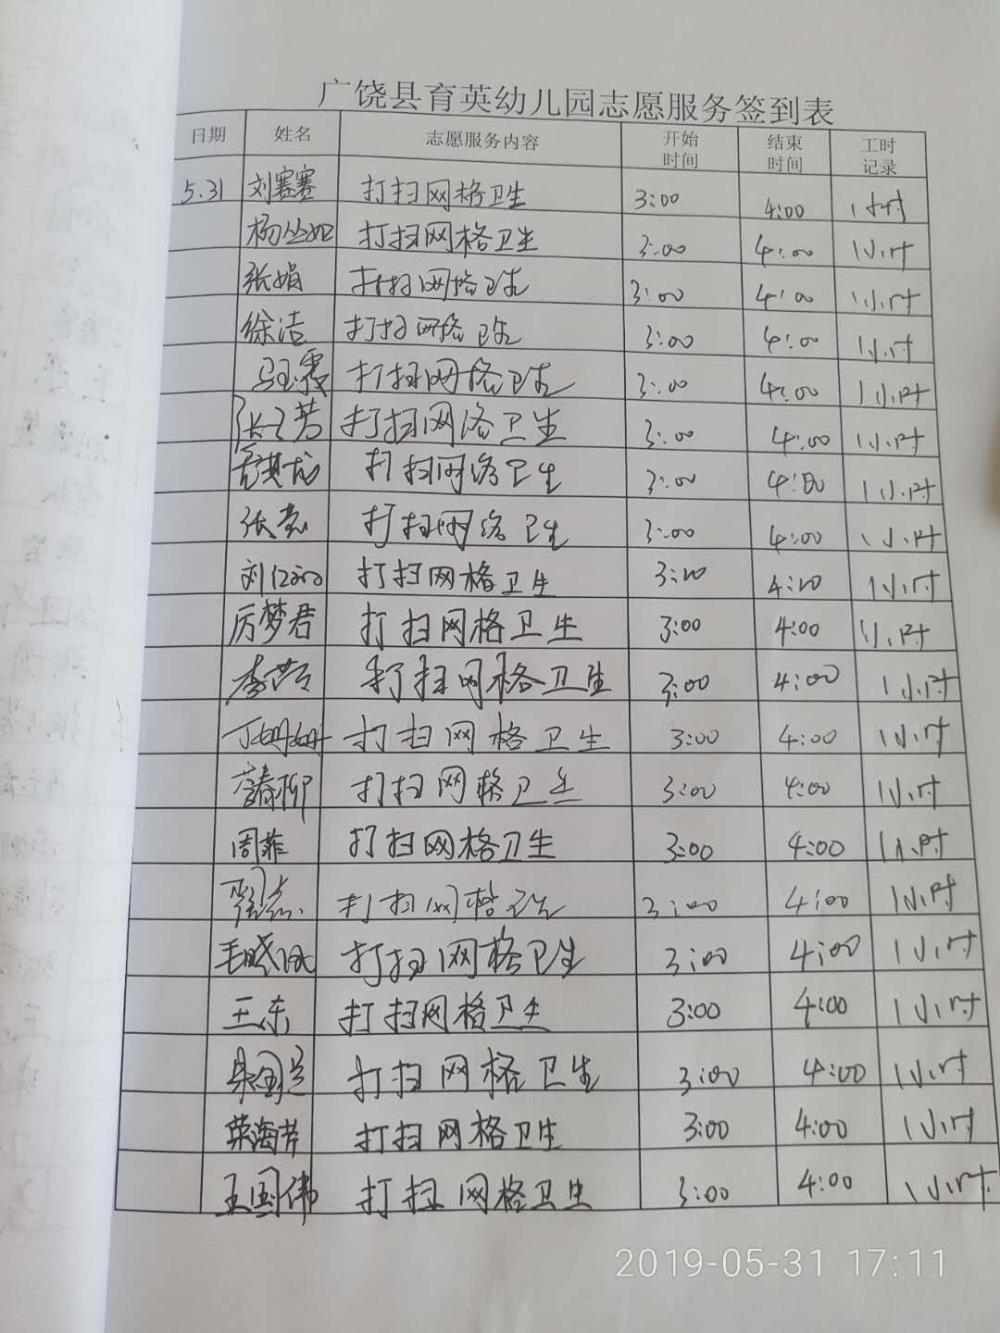 广饶县育英幼儿园志愿服务签到表
日期 姓名 志愿服务内容 开始时间 结束时间 工时记录
5.31 刘赛赛 打扫网格卫生 3:00 4:00 1小时
杨丛妲 打扫网格卫生 3:00 4:00 1小时
张娟 打扫网格卫生 3:00 4:00 1小时
徐洁 打扫网格卫生 3:00 4:00 1小时
马玉霞 打扫网格卫生 3:00 4:00 1小时
张芳 打扫网络卫生 3:00 4:00 1小时
打扫网络卫生 3:00 4:00 1小时
张亮 打扫网络卫生 3:00 4:00 1小时
打扫网格卫生 3:00 4:00 1小时
厉梦君 打扫网格卫生 3:00 4:00 1小时
打扫网格卫生 3:00 4:00 1小时
丁姗姗 打扫网格卫生 3:00 4:00 1小时
打扫网格卫生 3:00 4:00 1小时
周菲 打扫网格卫生 3:00 4:00 1小时
打扫网格卫生 3:00 4:00 1小时
打扫网格卫生 3:00 4:00 1小时
王东 打扫网格卫生 3:00 4:00 1小时
打扫网格卫生 3:00 4:00 1小时
荣海芹 打扫网格卫生 3:00 4:00 1小时
王国伟 打扫网格卫生 3:00 4:00 1小时
2019-05-31 17:11